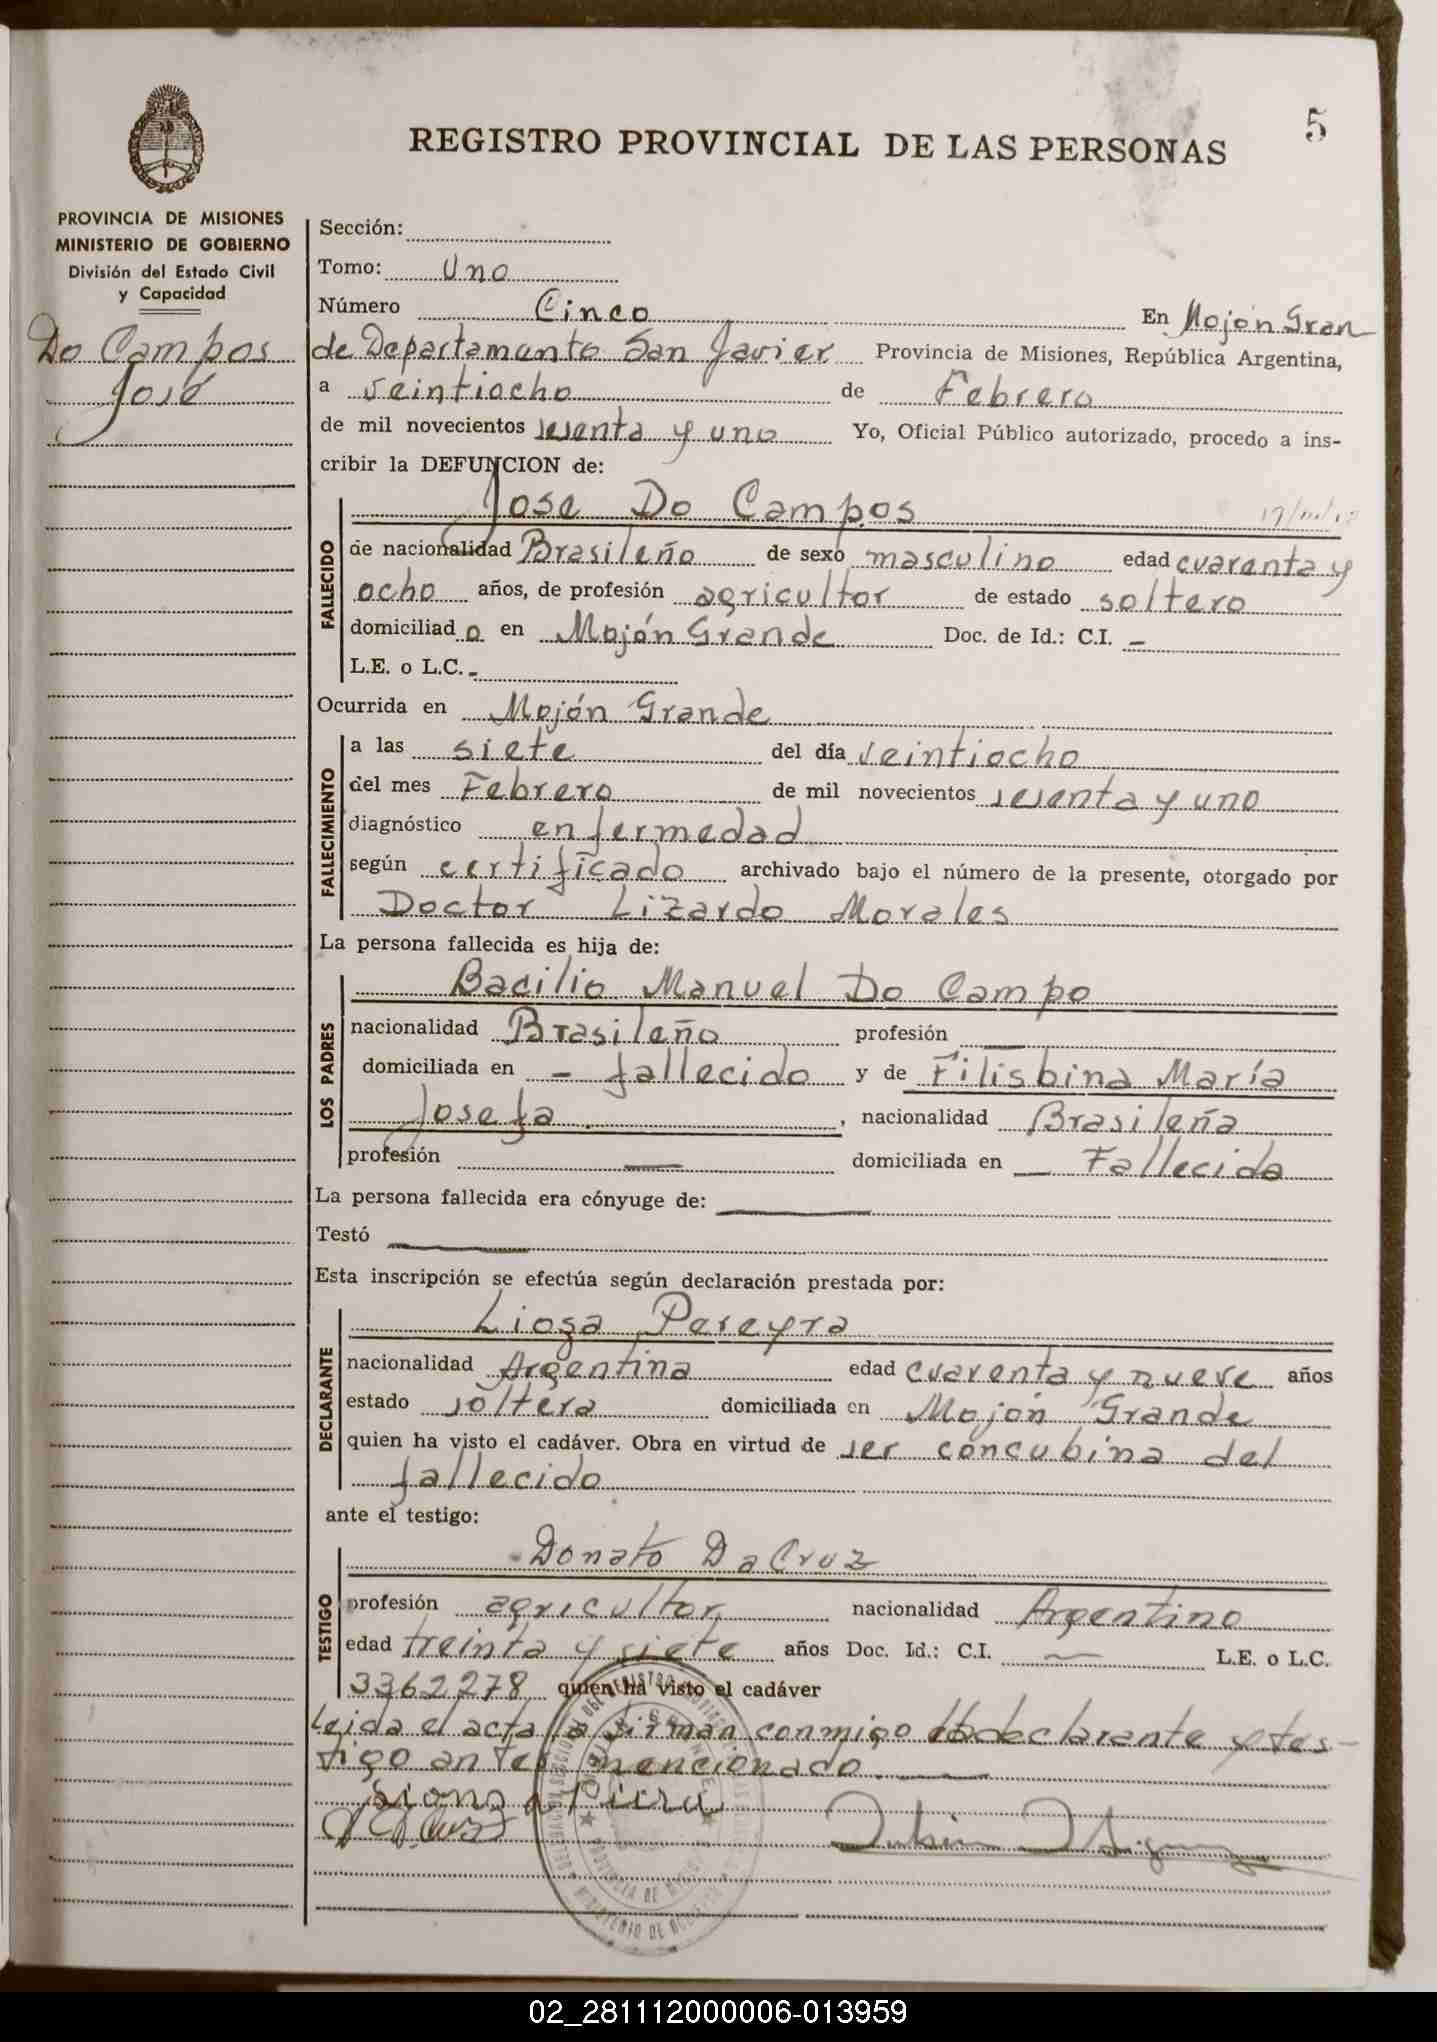 5
REGISTRO PROVINCIAL DE LAS PERSONAS
PROVINCIA DE MISIONES
MINISTERIO DE GOBIERNO
División del Estado Civil
y Capacidad
Do Campos
José
Sección:
Tomo: Uno
Número Cinco En Mojón Gran
de Departamento San Javier Provincia de Misiones, República Argentina,
a veintiocho de Febrero
de mil novecientos sesenta y uno Yo, Oficial Público autorizado, procedo a ins-
cribir la DEFUNCION de:
Jose Do Campos
FALLECIDO
de nacionalidad Brasileño de sexo masculino edad cuarenta y
ocho años, de profesión agricultor de estado soltero
domiciliado en Mojón Grande Doc. de Id.: C.I. –
L.E. o L.C. -
Ocurrida en Mojón Grande
FALLECIMIENTO
a las siete del día veintiocho
del mes Febrero de mil novecientos sesenta y uno
diagnóstico enfermedad
según certificado archivado bajo el número de la presente, otorgado por
Doctor Lizardo Morales
La persona fallecida es hija de:
LOS PADRES
Bacilio Manuel Do Campo
nacionalidad Brasileño profesión —
domiciliada en – fallecido y de Filisbina María
Josefa , nacionalidad Brasileña
profesión — domiciliada en — Fallecida
La persona fallecida era cónyuge de: —
Testó —
Esta inscripción se efectúa según declaración prestada por:
DECLARANTE
Lioza Pereyra
nacionalidad Argentina edad cuarenta y nueve años
estado soltera domiciliada en Mojón Grande
quien ha visto el cadáver. Obra en virtud de ser concubina del
fallecido
ante el testigo:
TESTIGO
Donato DaCruz
profesión agricultor nacionalidad Argentino
edad treinta y siete años Doc. Id.: C.I. — L.E. o L.C.
3362278 quien ha visto el cadáver
Leida el acta la firman conmigo declarante y tes-
tigo antes mencionado —
PROVINCIA DE MISIONES
02_281112000006-013959